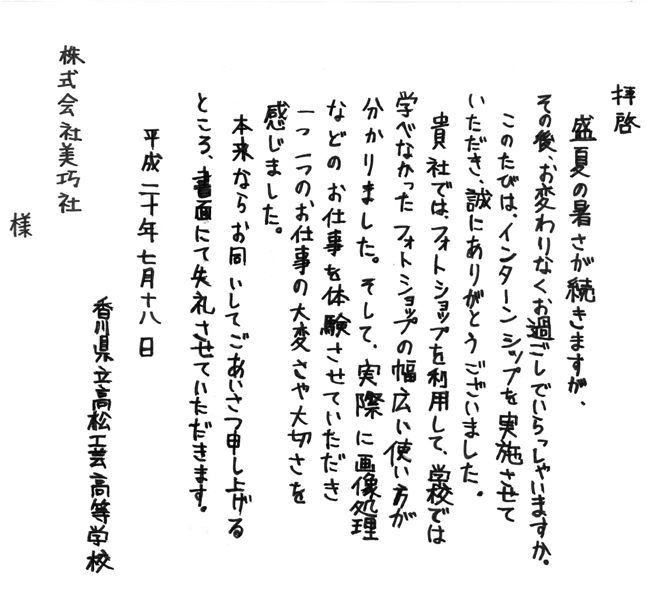 拝啓
盛夏の暑さが続きますが、
その後、お変わりなくお過ごしでいらっしゃいますか。
このたびは、インターンシップを実施させて
いただき、誠にありがとうございました。
貴社では、フォトショップを利用して、学校では
学べなかったフォトショップの幅広い使い方が
分かりました。そして、実際に画像処理
などのお仕事を体験させていただき
一つ一つのお仕事の大変さや大切さを
感じました。
本来ならお伺いしてごあいさつ申し上げる
ところ、書面にて失礼させていただきます。
平成二十年七月十八日
香川県立高松工芸高等学校
株式会社美巧社
様